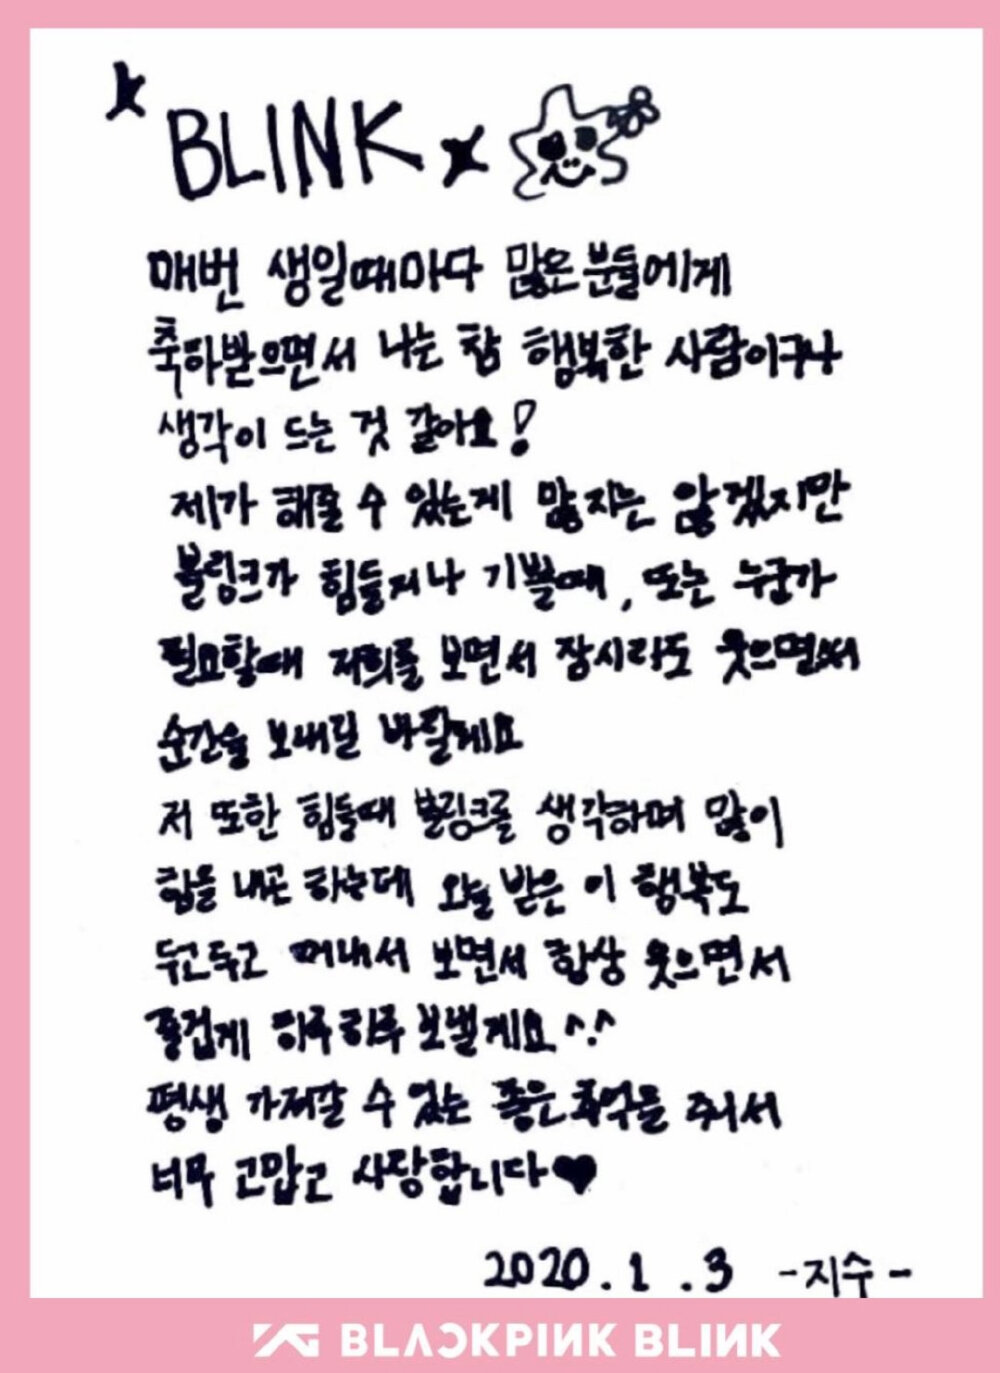 BLINK
매번 생일때마다 많은분들에게
축하받으면서 나는 참 행복한 사람이구나
생각이 드는 것 같아요!
제가 해줄 수 있는게 많지는 않겠지만
블링크가 힘들거나 기쁠때, 또는 누군가
필요할때 저희를 보면서 잠시라도 웃으면서
순간을 보내길 바랄게요
저 또한 힘들때 블링크를 생각하며 많이
힘을 내곤 하는데 오늘 받은 이 행복도
두고두고 꺼내서 보면서 항상 웃으면서
즐겁게 하루하루 보낼게요^.^
평생 가져갈 수 있는 좋은 추억을 줘서
너무 고맙고 사랑합니다♥
2020.1.3 -지수-
YG BLACKPINK BLINK